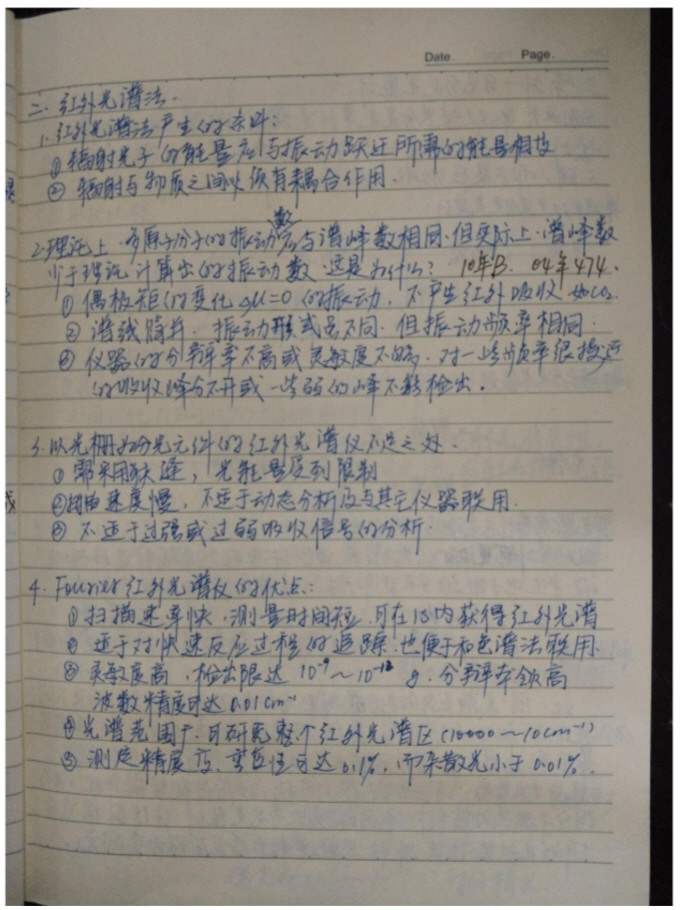 Date. Page.
二. 红外光谱法.
1. 红外光谱法产生的条件:
① 辐射光子的能量应与振动跃迁所需的能量相投
② 辐射与物质之间必须有耦合作用.
2. 理论上, 多原子分子的振动数应与谱峰数相同.但实际上.谱峰数
少于理论计算出的振动数.这是为什么? 10年B. 04年474.
① 偶极矩的变化 Δμ=0 的振动, 不产生红外吸收.如CO₂.
② 谱线简并. 振动形式虽不同. 但振动频率相同.
③ 仪器的分辩率不高或灵敏度不够. 对一些频率很接近
的吸收峰分不开或一些弱的峰不能检出.
3. 以光栅为分光元件的红外光谱仪不足之处.
① 需采用狭缝, 光能量受到限制
② 扫描速度慢, 不适于动态分析及与其它仪器联用.
③ 不适于过强或过弱吸收信号的分析.
4. Fourier红外光谱仪的优点:
① 扫描速率快.测量时间短.可在1S内获得红外光谱
② 适于对快速反应过程的追踪.也便于和色谱法联用.
③ 灵敏度高. 检出限达 10⁻⁹~10⁻¹² g. 分辩本领高
波数精度可达 0.01cm⁻¹
④ 光谱范围广.可研究整个红外光谱区(10000~10cm⁻¹)
⑤ 测定精度高. 重复性可达0.1%, 而杂散光小于0.01%.